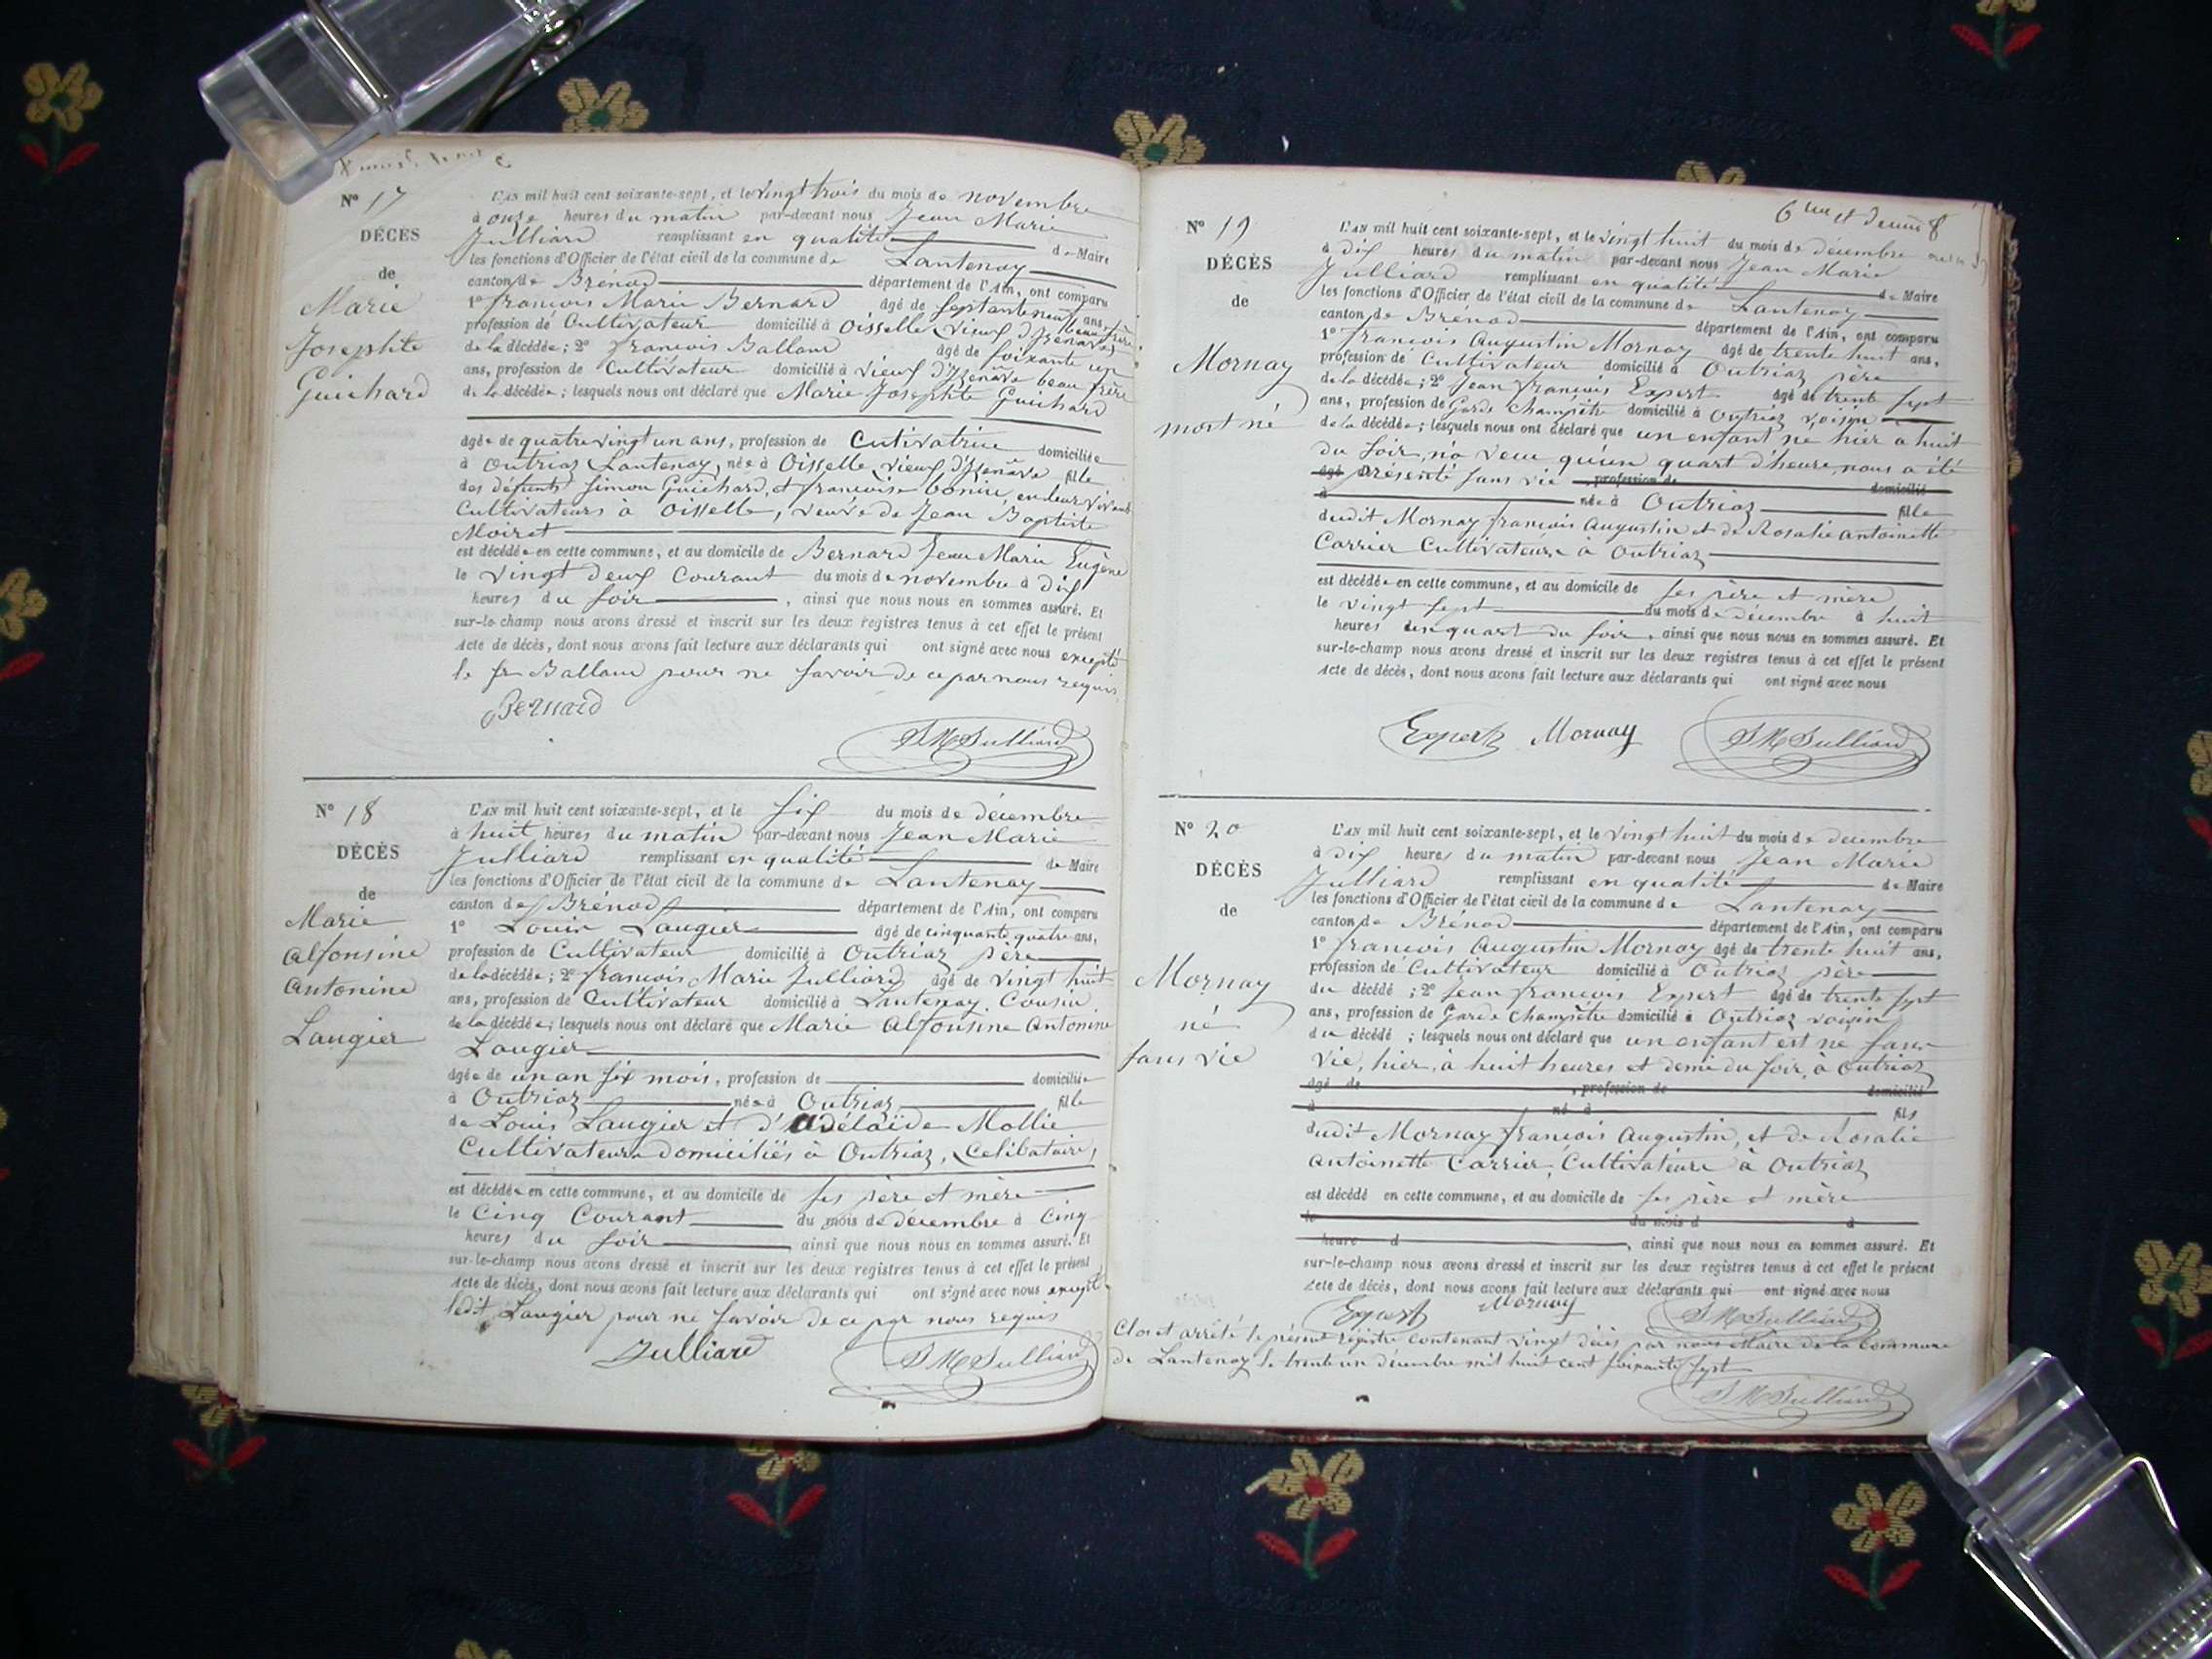 N° 17
DÉCÈS
de
Marie
Josephte
Guichard
L'AN mil huit cent soixante-sept, et le vingt trois du mois de novembre
à onze heures du matin par-devant nous Jean Marie
Julliard remplissant en qualité de Maire
les fonctions d'Officier de l'état civil de la commune de Lantenay
canton de Brénod département de l'Ain, ont comparu
1° françois Marie Bernard âgé de septante neuf ans,
profession de Cultivateur domicilié à Oisselle, vieux d'Izenave, beau frère
de la décédée ; 2° françois Balland âgé de soixante un
ans, profession de Cultivateur domicilié à vieux d'Izenave beau frère
de la décédée ; lesquels nous ont déclaré que Marie Josephte Guichard
âgée de quatre vingt un ans, profession de Cutivatrice domiciliée
à Outriaz Lantenay, née à Oisselle, vieux d'Izenave fille
des défunts Simon Guichard, et françoise en leur vivant
Cultivateurs à Oisselle, veuve de Jean Baptiste
Moiret
est décédée en cette commune, et au domicile de Bernard Jean Marie Eugène
le vingt deux Courant du mois de novembre à dix
heures du soir , ainsi que nous nous en sommes assuré. Et
sur-le-champ nous avons dressé et inscrit sur les deux registres tenus à cet effet le présent
Acte de décès, dont nous avons fait lecture aux déclarants qui ont signé avec nous excepté
le sr Balland pour ne savoir de ce par nous requis
Bernard
JM Julliard
N° 18
DÉCÈS
de
Marie
Alfonsine
Antonine
Laugier
L'AN mil huit cent soixante-sept, et le six du mois de décembre
à huit heures du matin par-devant nous Jean Marie
Julliard remplissant en qualité de Maire
les fonctions d'Officier de l'état civil de la commune de Lantenay
canton de Brénod département de l'Ain, ont comparu
1° Louis Laugier âgé de cinquante quatre ans,
profession de Cultivateur domicilié à Outriaz père
de la décédée ; 2° françois Marie Julliard âgé de vingt huit
ans, profession de Cultivateur domicilié à Lantenay Cousin
de la décédée ; lesquels nous ont déclaré que Marie Alfonsine Antonine
Laugier
âgée de un an six mois, profession de domiciliée
à Outriaz née à Outriaz fille
de Louis Laugier et d'Adélaïde Mollie
Cultivateurs domiciliés à Outriaz, Celibataire,
est décédée en cette commune, et au domicile de ses père et mère
le Cinq Courant du mois de décembre à Cinq
heures du soir , ainsi que nous nous en sommes assuré. Et
sur-le-champ nous avons dressé et inscrit sur les deux registres tenus à cet effet le présent
Acte de décès, dont nous avons fait lecture aux déclarants qui ont signé avec nous excepté
ledit Laugier pour ne savoir de ce par nous requis
Julliard
JM Julliard
6me et
N° 19
DÉCÈS
de
Mornay
mort né
L'AN mil huit cent soixante-sept, et le vingt huit du mois de décembre
à dix heures du matin par-devant nous Jean Marie
Julliard remplissant en qualité de Maire
les fonctions d'Officier de l'état civil de la commune de Lantenay
canton de Brénod département de l'Ain, ont comparu
1° françois Augustin Mornay âgé de trente huit ans,
profession de Cultivateur domicilié à Outriaz père
de la décédée ; 2° Jean françois Expert âgé de trente sept
ans, profession de Garde Champêtre domicilié à Outriaz voisin
de la décédée ; lesquels nous ont déclaré que un enfant né hier à huit
du soir, n'a vécu qu'un quart d'heure, nous a été
âgé présenté sans vie profession de domicilié
à née à Outriaz fille
dudit Mornay françois Augustin et de Rosalie Antoinette
Carrier Cultivateurs à Outriaz
est décédée en cette commune, et au domicile de ses père et mère
le vingt sept du mois de décembre à huit
heures un quart du soir , ainsi que nous nous en sommes assuré. Et
sur-le-champ nous avons dressé et inscrit sur les deux registres tenus à cet effet le présent
Acte de décès, dont nous avons fait lecture aux déclarants qui ont signé avec nous
Expert Mornay JM Julliard
N° 20
DÉCÈS
de
Mornay
né
sans vie
L'AN mil huit cent soixante-sept, et le vingt huit du mois de décembre
à dix heures du matin par-devant nous Jean Marie
Julliard remplissant en qualité de Maire
les fonctions d'Officier de l'état civil de la commune de Lantenay
canton de Brénod département de l'Ain, ont comparu
1° françois Augustin Mornay âgé de trente huit ans,
profession de Cultivateur domicilié à Outriaz père
du décédé ; 2° Jean françois Expert âgé de trente sept
ans, profession de Garde Champêtre domicilié à Outriaz voisin
du décédé ; lesquels nous ont déclaré que un enfant est né sans
vie, hier, à huit heures et demie du soir, à Outriaz
âgé de , profession de domicilié
à né à fils
dudit Mornay françois Augustin, et de Rosalie
Antoinette Carrier, Cultivateurs à Outriaz
est décédé en cette commune, et au domicile de ses père et mère
le du mois d à
heure d , ainsi que nous nous en sommes assuré. Et
sur-le-champ nous avons dressé et inscrit sur les deux registres tenus à cet effet le présent
Acte de décès, dont nous avons fait lecture aux déclarants qui ont signé avec nous
Expert Mornay JM Julliard
Clos et arrêté le présent régistre contenant vingt décès par nous Maire de la Commune
de Lantenay le trente un décembre mil huit cent soixante sept
JM Julliard